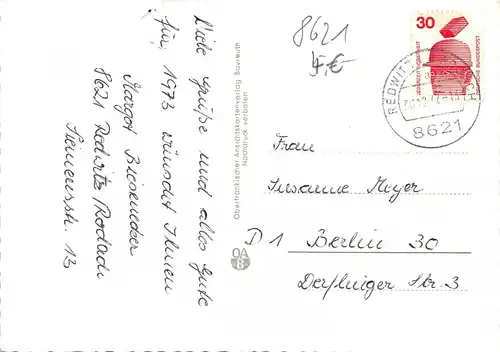 Viele Grüße und alles Gute
für 1973 wünscht Ihnen
Margot
8621 Redwitz/Rodach
Siemensstr. 13
Oberfränkischer Ansichtskartenverlag Bayreuth
Nachdruck verboten
OA
B
8621
30
JEDERZEIT SICHERHEIT
DEUTSCHE BUNDESPOST
REDWITZ
8621
Frau
Susanne Meyer
D 1 Berlin 30
Derflinger Str. 3